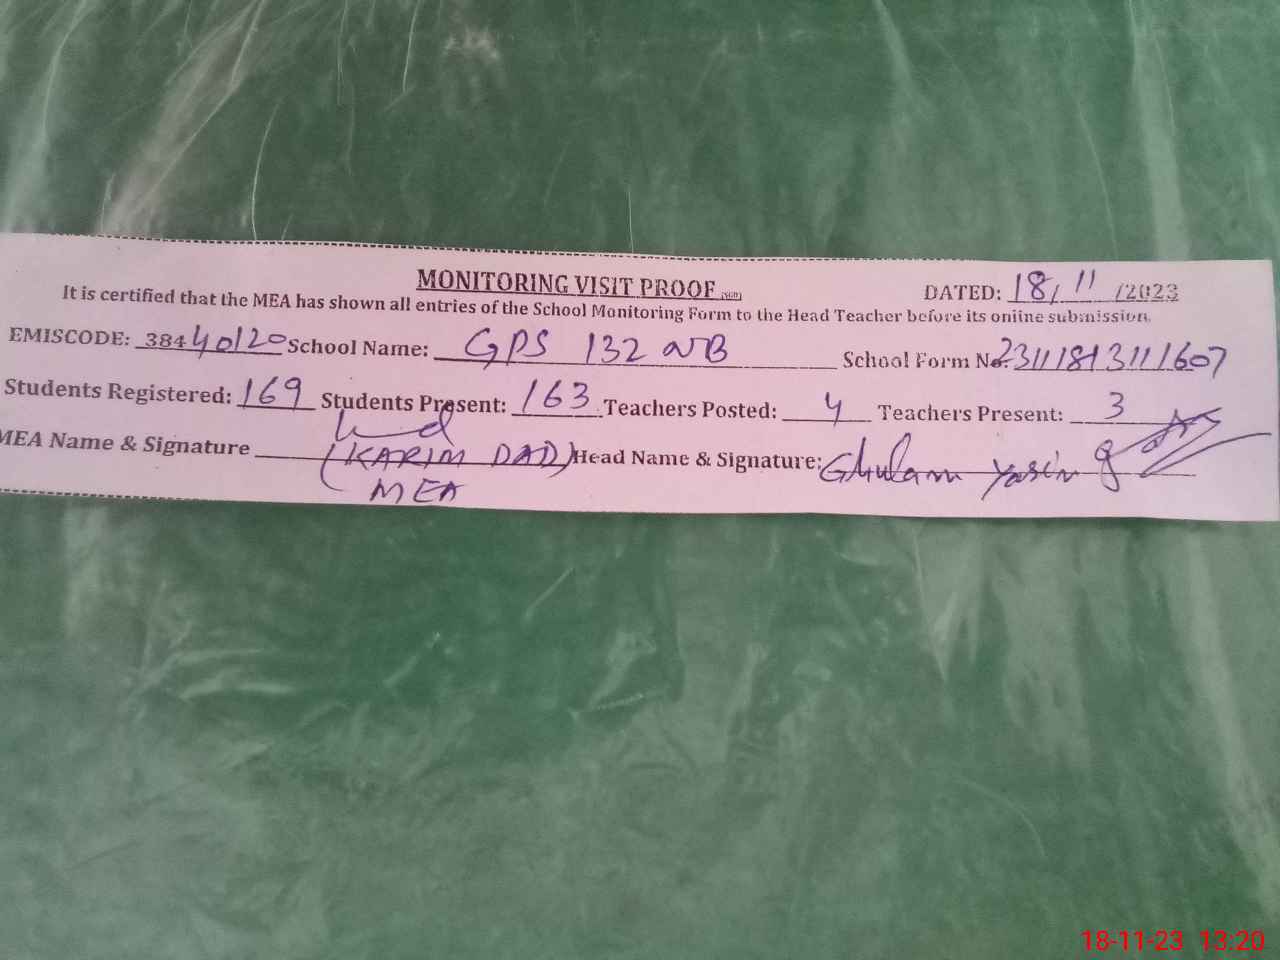 MONITORING VISIT PROOF
DATED: 18, 11 /2023
It is certified that the MEA has shown all entries of the School Monitoring Form to the Head Teacher before its online submission.
EMISCODE: 38440120 School Name: GPS 132 NB School Form No. 2311181311607
Students Registered: 169 Students Present: 163 Teachers Posted: 4 Teachers Present: 3
MEA Name & Signature (KARIM DAD) Head Name & Signature: Ghulam Yasin
MEA
18-11-23 13:20